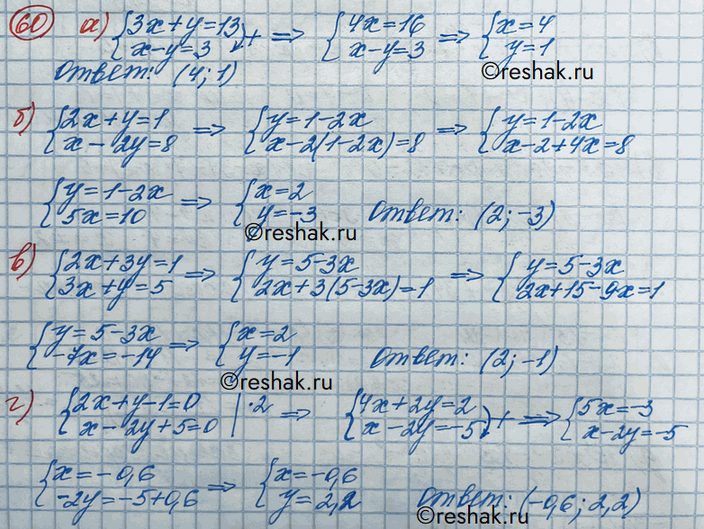 60 а) {3x+y=13 x-y=3 + ⇒ {4x=16 x-y=3 ⇒ {x=4 y=1
©reshak.ru
Ответ: (4; 1)
б) {2x+y=1 x-2y=8 ⇒ {y=1-2x x-2(1-2x)=8 ⇒ {y=1-2x x-2+4x=8
{y=1-2x 5x=10 ⇒ {x=2 y=-3 Ответ: (2; -3)
©reshak.ru
в) {2x+3y=1 3x+y=5 ⇒ {y=5-3x 2x+3(5-3x)=1 ⇒ {y=5-3x 2x+15-9x=1
{y=5-3x -7x=-14 ⇒ {x=2 y=-1 Ответ: (2; -1)
©reshak.ru
г) {2x+y-1=0 x-2y+5=0 |·2 ⇒ {4x+2y=2 x-2y=-5 + ⇒ {5x=-3 x-2y=-5
{x=-0,6 -2y=-5+0,6 ⇒ {x=-0,6 y=2,2 Ответ: (-0,6; 2,2)
©reshak.ru